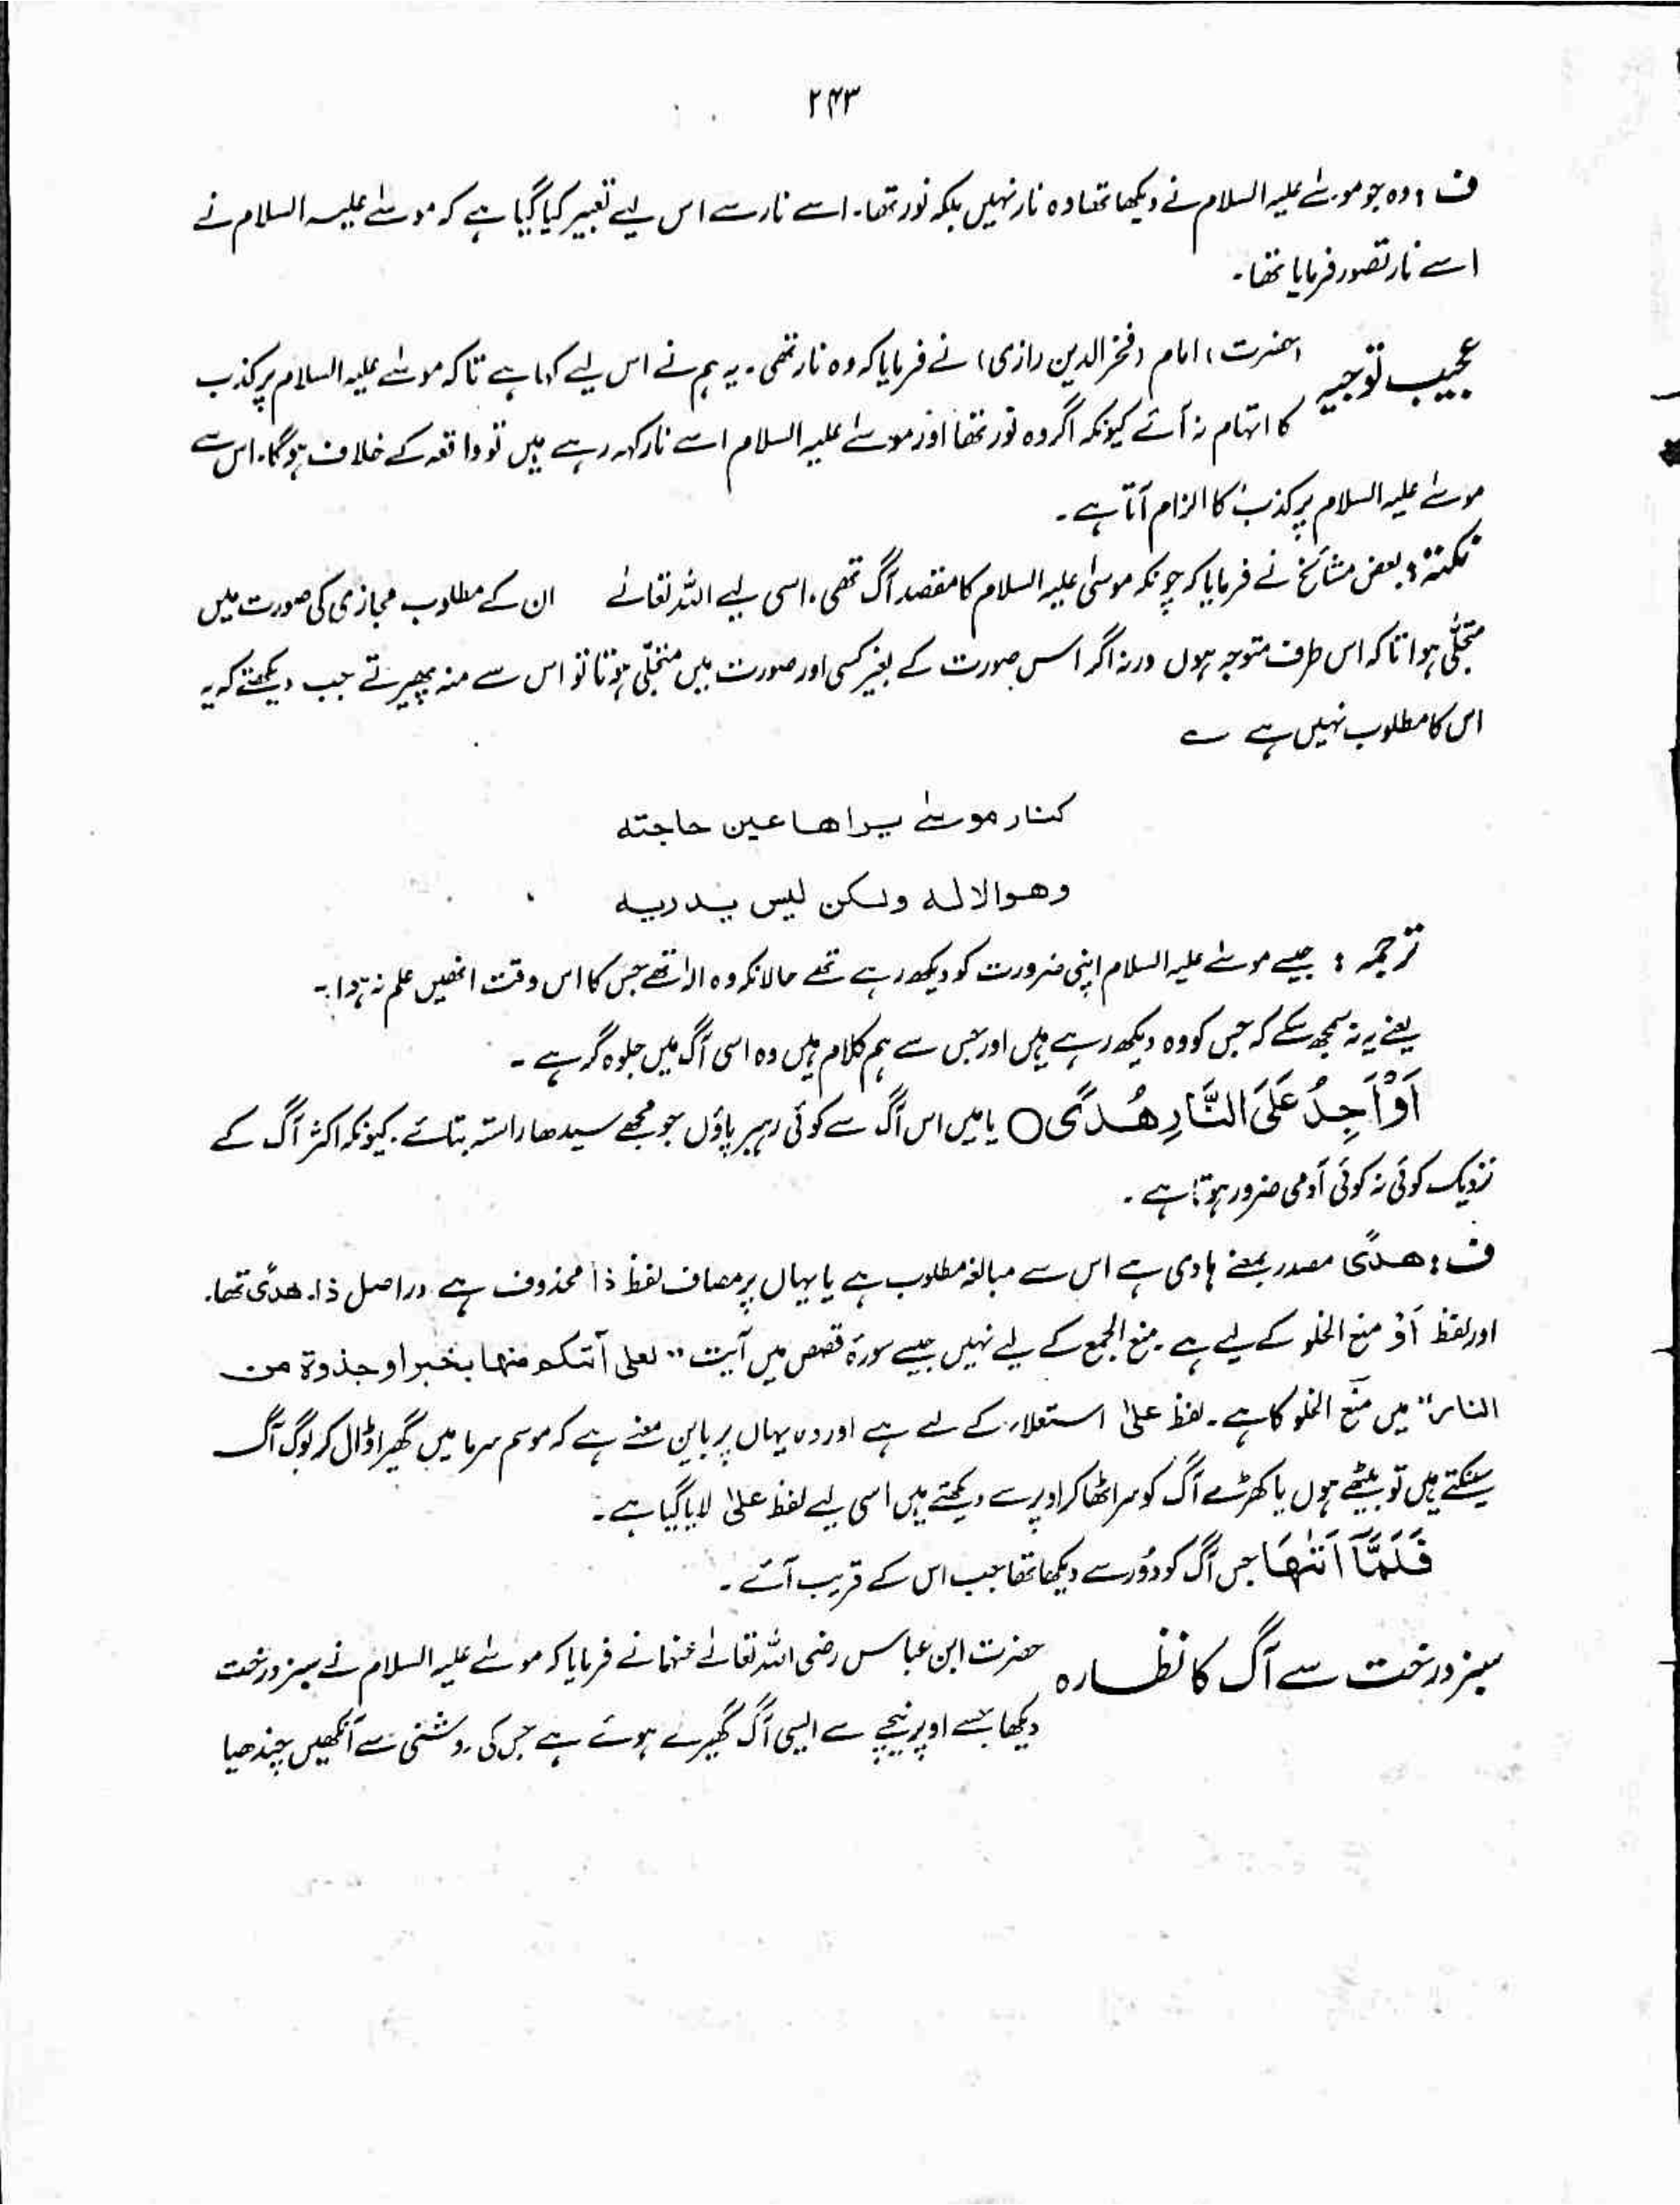 ۲۴۳
ف : وہ جو موسےٰ علیہ السلام نے دیکھا تھا وہ نار نہیں بلکہ نور تھا۔ اسے نار سے اس لیے تعبیر کیا گیا ہے کہ موسےٰ علیہ السلام نے
اسے نار تصور فرمایا تھا۔
عجیب توجیہ (حضرت) امام (فخر الدین رازی) نے فرمایا کہ وہ نار تھی۔ یہ ہم نے اس لیے کہا ہے تاکہ موسےٰ علیہ السلام پر کذب
کا اتہام نہ آئے کیونکہ اگر وہ نور تھا اور موسےٰ علیہ السلام اسے نار کہہ رہے ہیں تو واقعہ کے خلاف ہوگا۔ اس سے
موسےٰ علیہ السلام پر کذب کا الزام آتا ہے۔
نکتہ : بعض مشائخ نے فرمایا کہ چونکہ موسیٰ علیہ السلام کا مقصد آگ تھی، اسی لیے اللہ تعالےٰ ان کے مطلوب مجازی کی صورت میں
متجلّی ہوا تاکہ اس طرف متوجہ ہوں ورنہ اگر اس صورت کے بغیر کسی اور صورت میں متجلّی ہوتا تو اس سے منہ پھیرتے جب دیکھتے کہ یہ
اس کا مطلوب نہیں ہے ؎
کنار موسےٰ یراھا عین حاجتہ
وھوالالہ ولکن لیس یدریہ
ترجمہ : جیسے موسےٰ علیہ السلام اپنی ضرورت کو دیکھ رہے تھے حالانکہ وہ الٰہ تھے جس کا اس وقت انھیں علم نہ ہوا۔
یعنے یہ نہ سمجھ سکے کہ جس کو وہ دیکھ رہے ہیں اور جس سے ہم کلام ہیں وہ اسی آگ میں جلوہ گر ہے۔
اَوْ اَجِدُ عَلَی النَّارِ ھُدًی○ یا میں اس آگ سے کوئی رہبر پاؤں جو مجھے سیدھا راستہ بتائے۔ کیونکہ اکثر آگ کے
نزدیک کوئی نہ کوئی آدمی ضرور ہوتا ہے۔
ف : ھدًی مصدر بمعنے ہادی ہے اس سے مبالغہ مطلوب ہے یا یہاں پر مضاف لفظ ذا محذوف ہے دراصل ذا۔ ھدًی تھا۔
اور لفظ اَوْ منع الخلو کے لیے ہے۔ منع الجمع کے لیے نہیں جیسے سورۃ قصص میں آیت "لعلی آتیکم منھا بخبر او جذوۃ من
النار" میں منع الخلو کا ہے۔ لفظ علیٰ استعلاء کے لیے ہے اور وہ یہاں پر باین معنے ہے کہ موسم سرما میں گھیرا ڈال کر لوگ آگ
سینکتے ہیں تو بیٹھے ہوں یا کھڑے آگ کو سر اٹھا کر اوپر سے دیکھتے ہیں اسی لیے لفظ علیٰ لایا گیا ہے۔
فَلَمَّآ اَتٰىھَا جس آگ کو دُور سے دیکھا تھا جب اس کے قریب آئے۔
سبز درخت سے آگ کا نظارہ حضرت ابن عباس رضی اللہ تعالےٰ عنہما نے فرمایا کہ موسےٰ علیہ السلام نے سبز درخت
دیکھا جسے اوپر نیچے سے ایسی آگ گھیرے ہوئے ہے جس کی روشنی سے آنکھیں چندھیا